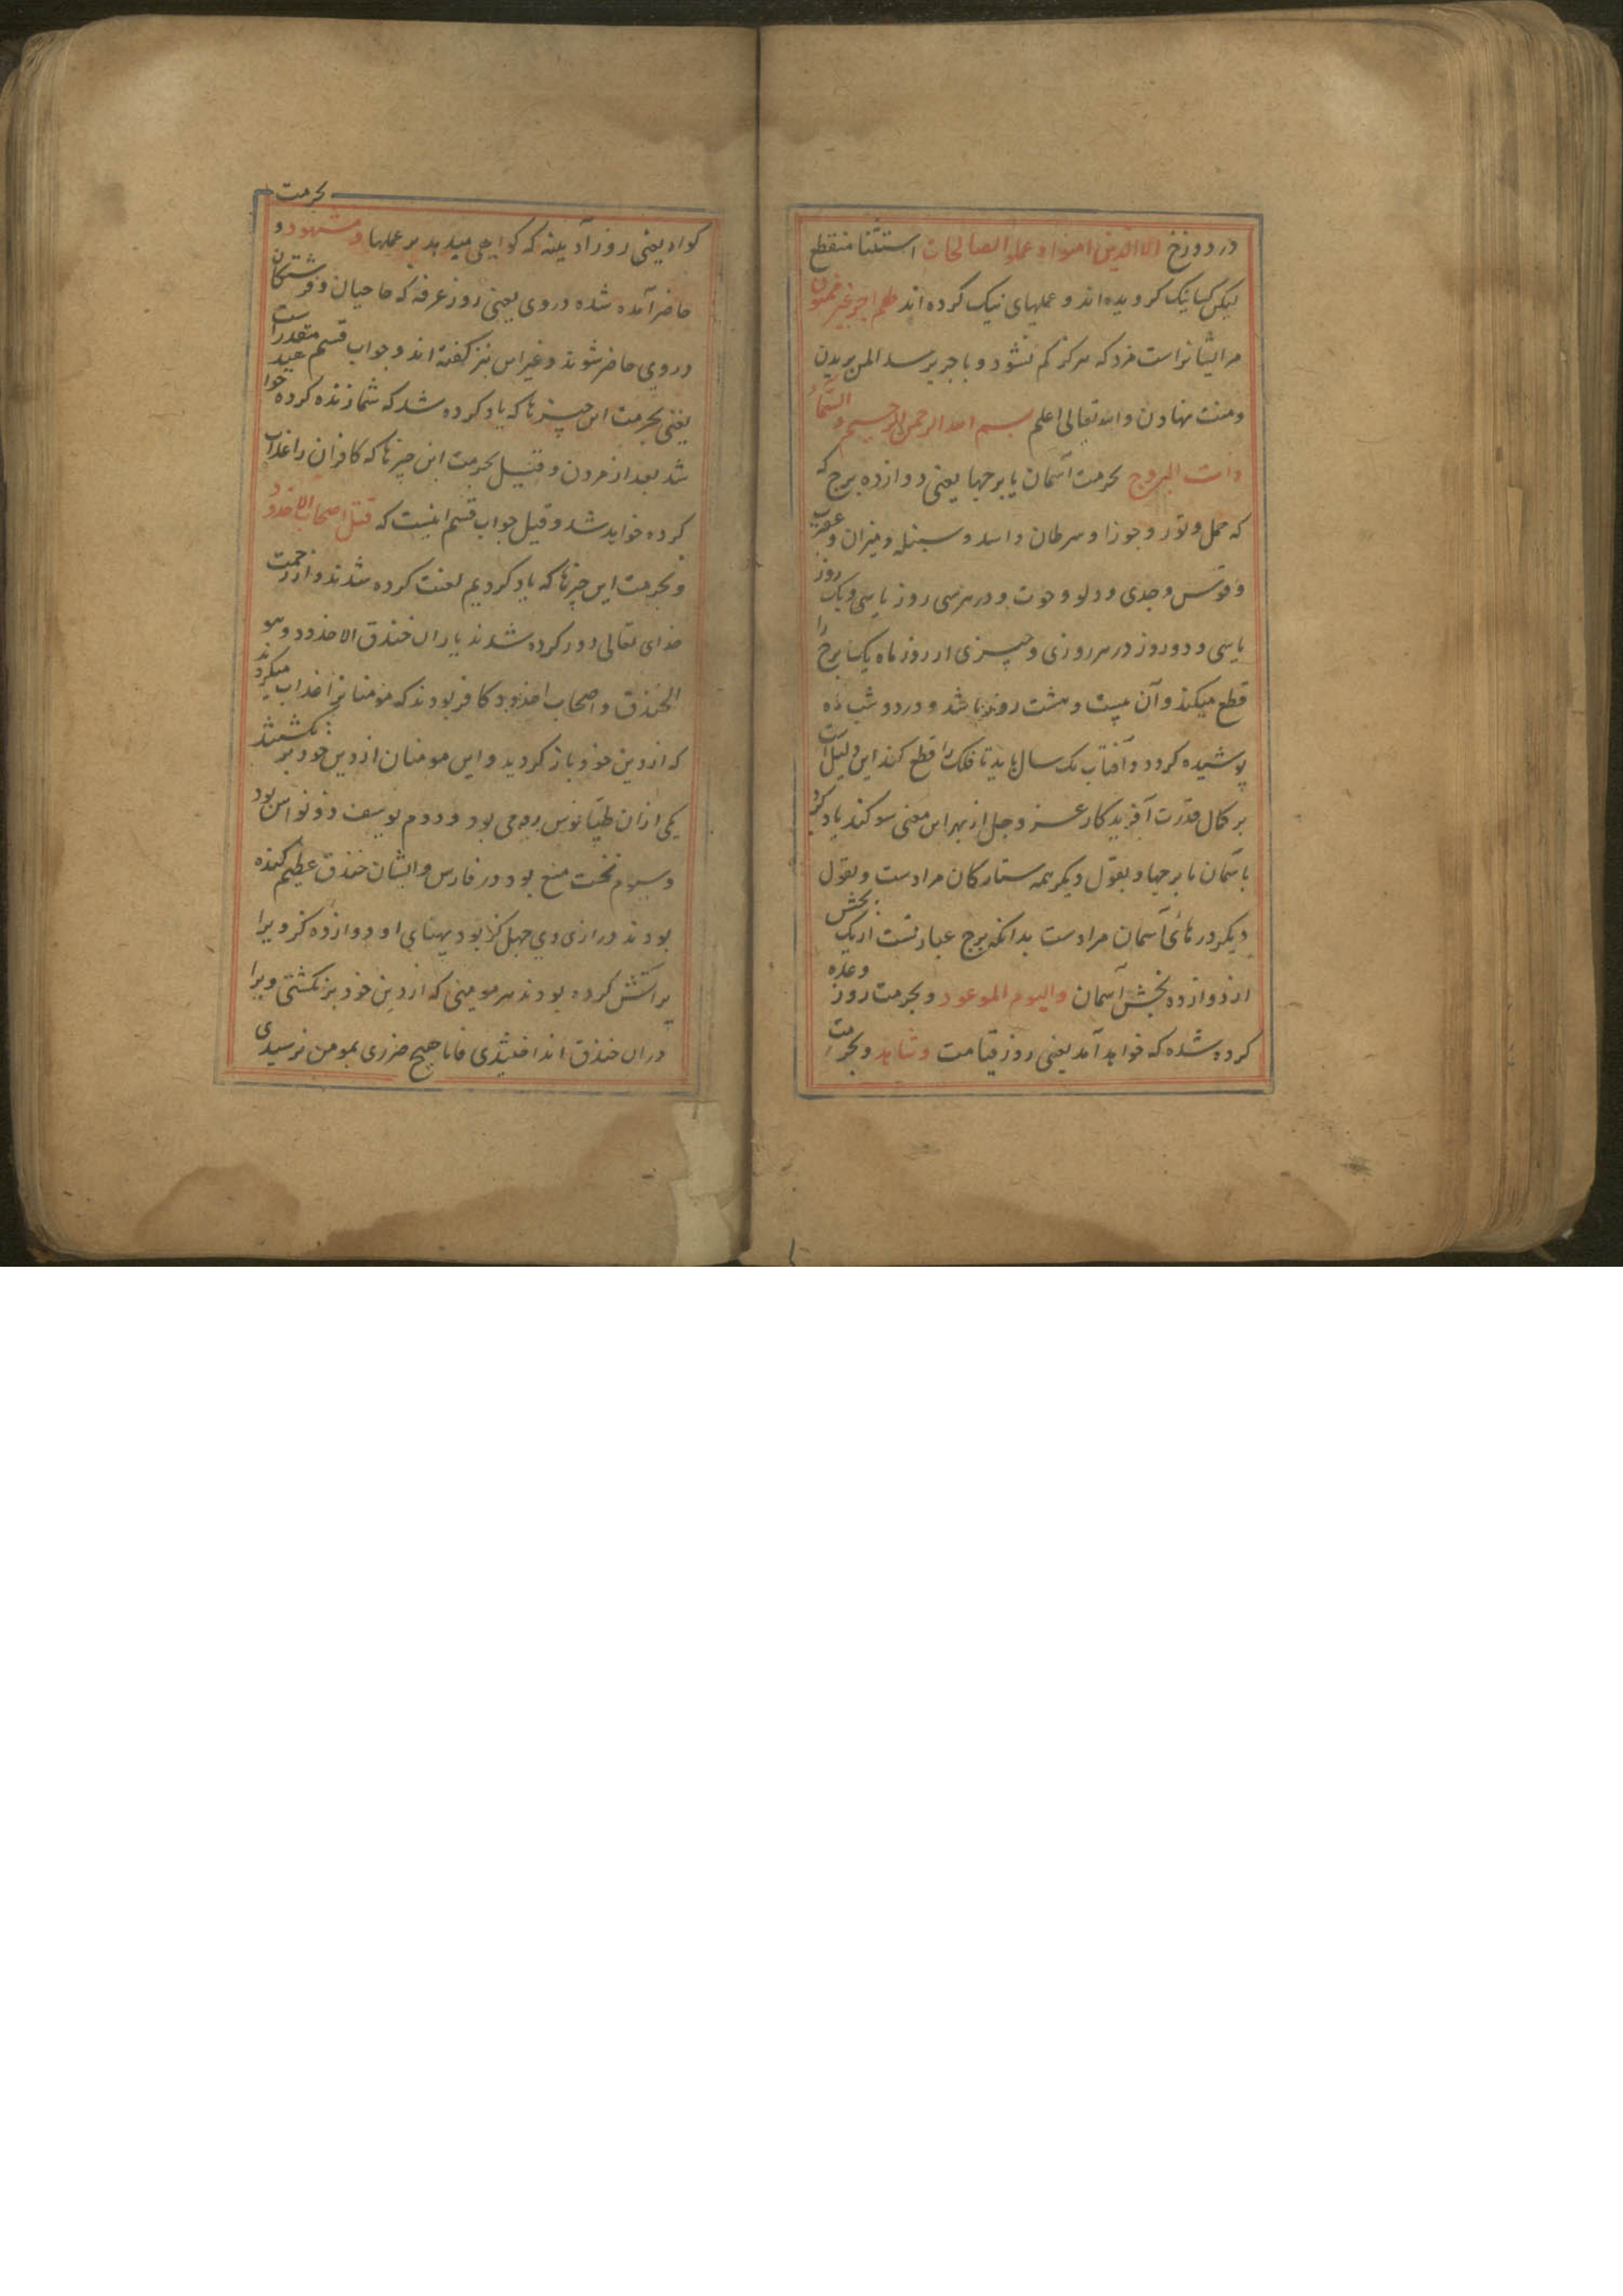 در دوزخ الا الذین امنوا و عملوا الصالحات استثنا منقطع
لیکن کسانیک کرویده اند و عملهای نیک کرده اند لهم اجر غیر ممنون
مر ایشانراست مزد که هرکز کم نشود و باجر برسد المن بریدن
و منت نهادن والله تعالی اعلم بسم الله الرحمن الرحیم والسماء
ذات البروج بحرمت آسمان با برجها یعنی دوازده برج که
که حمل و ثور و جوزا و سرطان و اسد و سنبله و میزان و عقرب
و قوس و جدی و دلو و حوت و در هر سی روز یا سی و یک روز
یا سی و دو روز در هر روزی و چیزی از روز ماه یک برج را
قطع میکند و آن بیست و هشت روز باشد و در دو شب ماه
پوشیده کردد و آفتاب یک سال باید تا فلک را قطع کند این دلیل است
بر کمال قدرت آفریدکار عز و جل از بهر این معنی سوکند یاد کرد
باسمان با برجها و بقول دیکر همه ستارکان مرادست و بقول
دیکر درهای آسمان مرادست بدانکه برج عبارتست از یک بخش
از دوازده بخش آسمان والیوم الموعود و بحرمت روز وعده
کرده شده که خواهد آمد یعنی روز قیامت وشاهد و بحرمت
بحرمت
کواه یعنی روز آدینه که کواهی میدهد بر عملها ومشهود و
حاضر آمده شده در وی یعنی روز عرفه که حاجیان و فرشتکان
در وی حاضر شوند و غیر این نیز کفته اند و جواب قسم مقدر است
یعنی بحرمت این چیزها که یاد کرده شد که شما زنده کرده خواهید
شد بعد از مردن و قیل بحرمت این چیزها که کافران را عذاب
کرده خواهد شد و قیل جواب قسم اینست که قتل اصحاب الاخدود
و بحرمت این چیزها که یاد کردیم لعنت کرده شدند و از رحمت
خدای تعالی دور کرده شدند یاران خندق الاخدود و هو
الخندق و اصحاب اخدود کافر بودند که مومنانرا عذاب میکردند
که از دین خود باز کردید و این مومنان از دین خود بر نکشتند
یکی ازان طپیانوس رومی بود و دوم یوسف ذونواس بود
و سیوم بخت بود در فارس و ایشان خندق عظیم کنده
بودند درازی وی چهل کز بود پهنای او دوازده کز ویرا
پر آتش کرده بودند هر مومنی که از دین خود بر نکشتی ویرا
دران خندق انداختندی فاما هیچ ضرری بمومن نرسیدی